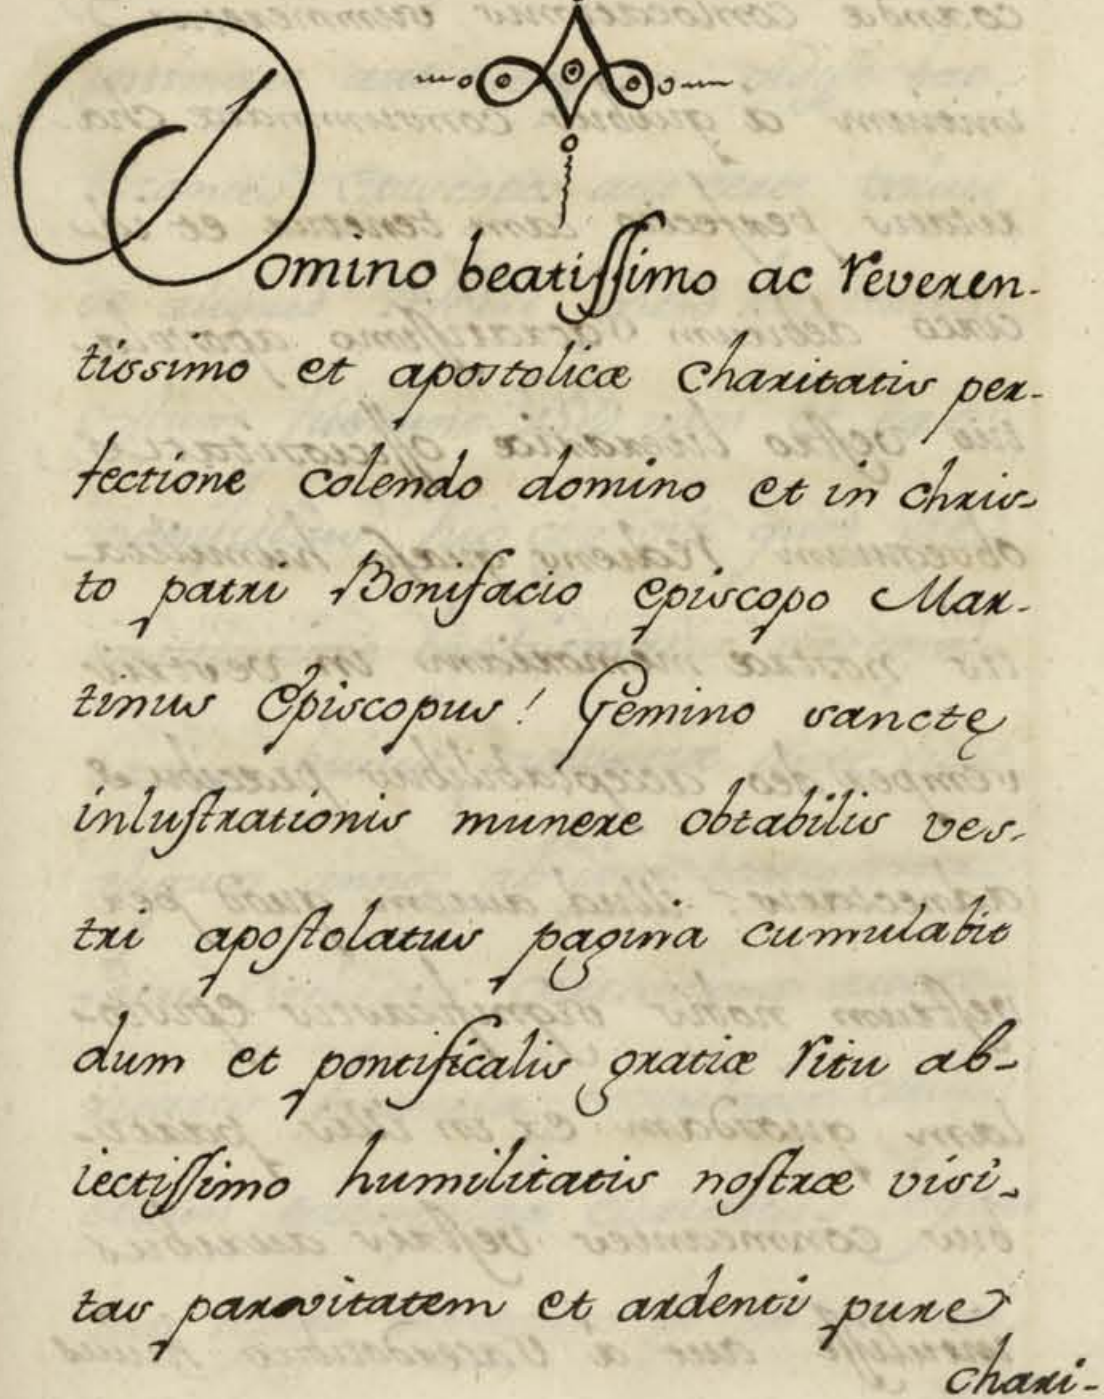 Domino beatissimo ac reveren-
tissimo et apostolicæ charitatis per-
fectione colendo domino et in chris-
to patri Bonifacio episcopo Mar-
tinus Episcopus! Gemino sanctę
inlustrationis munere obtabilis ves-
tri apostolatus pagina cumulabit
dum et pontificalis gratiæ ritu ab-
iectissimo humilitatis nostræ visi-
tas parvitatem et ardenti pure
chari-